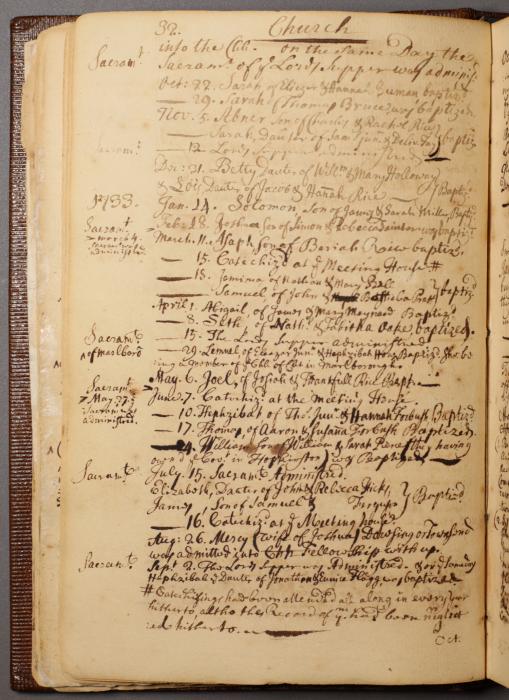 32. Church
into the Chh. on the same Day the
Sacramt. Sacramt. of ye Lords Supper was adminis.
Oct: 22. Sarah of Eliezer & Hannah baptizd
— 29. Sarah of Thomas Bruce was baptized
Nov. 5. Abner Son of Charles & Rachel Rice
— Sarah, Daughter of Sam Jun. & baptiz
Sacramt. — 12. Lords Supper administred
Dec: 31. Betty Daughter of Willm & Mary Holloway
& Lois Daughter of Jacob & Hannah Rice — Baptiz
1733. Jan. 14. Solomon, Son of James & Sarah Miller Baptiz
Sacramt. Feb. 18. Son of Simon & Rebecca was baptiz
March 4.
Sacramt. was March. 11. Asaph, son of Beriah Rice baptiz.
administred
— 15. Catechizd at ye Meeting House #
— 18. Jemima of Nathan & Mary Ball
— Samuel of John & baptiz.
April 1. Abigail of James & Mary Maynard Baptiz.
— 8. Seth of Nathl. & Tabitha Oake baptized.
Sacramt. — 15. The Lords Supper administred
of Marlboro — 29. Lemuel of Eleazer Junr. & Hephzibah How, Baptizd. She be
ing a member of ye Chh of Cht in Marlborough.
Sacramt. May. 6. Joel, of Josiah & Thankfull Rice Bapt.
May 27: June 7. Catechiz. at the Meeting House.
Sacramt was — 10. Hephzibah of Tho. Junr. & Hannah Forbush Baptizd
administred. — 17. Thomas of Aaron & Susana Forbush Baptized.
— 24. William Son of William & Sarah having
ownd ye Covt. in Hopkinston, was Baptized —
Sacramt. July. 15. Sacramt. Administred.
Elizabeth, Daughter of John & Rebecca Baptizd
James, Son of Samuel &
— 16. Catechiz. at ye Meeting house
Aug: 26. Mercy (wife of Joshua) Townsend
was admitted into Chh Fellowship with us.
Sacramt. Sept. 2. The Lords Supper was Administred. & ye same day
Hephzibah, ye Daughter of Jonathan & Eunice Flagg, was baptized
# Catechizings had been attended all along in every year
hitherto, altho the Record of 'em had been neglect
ed hitherto.
Oct.